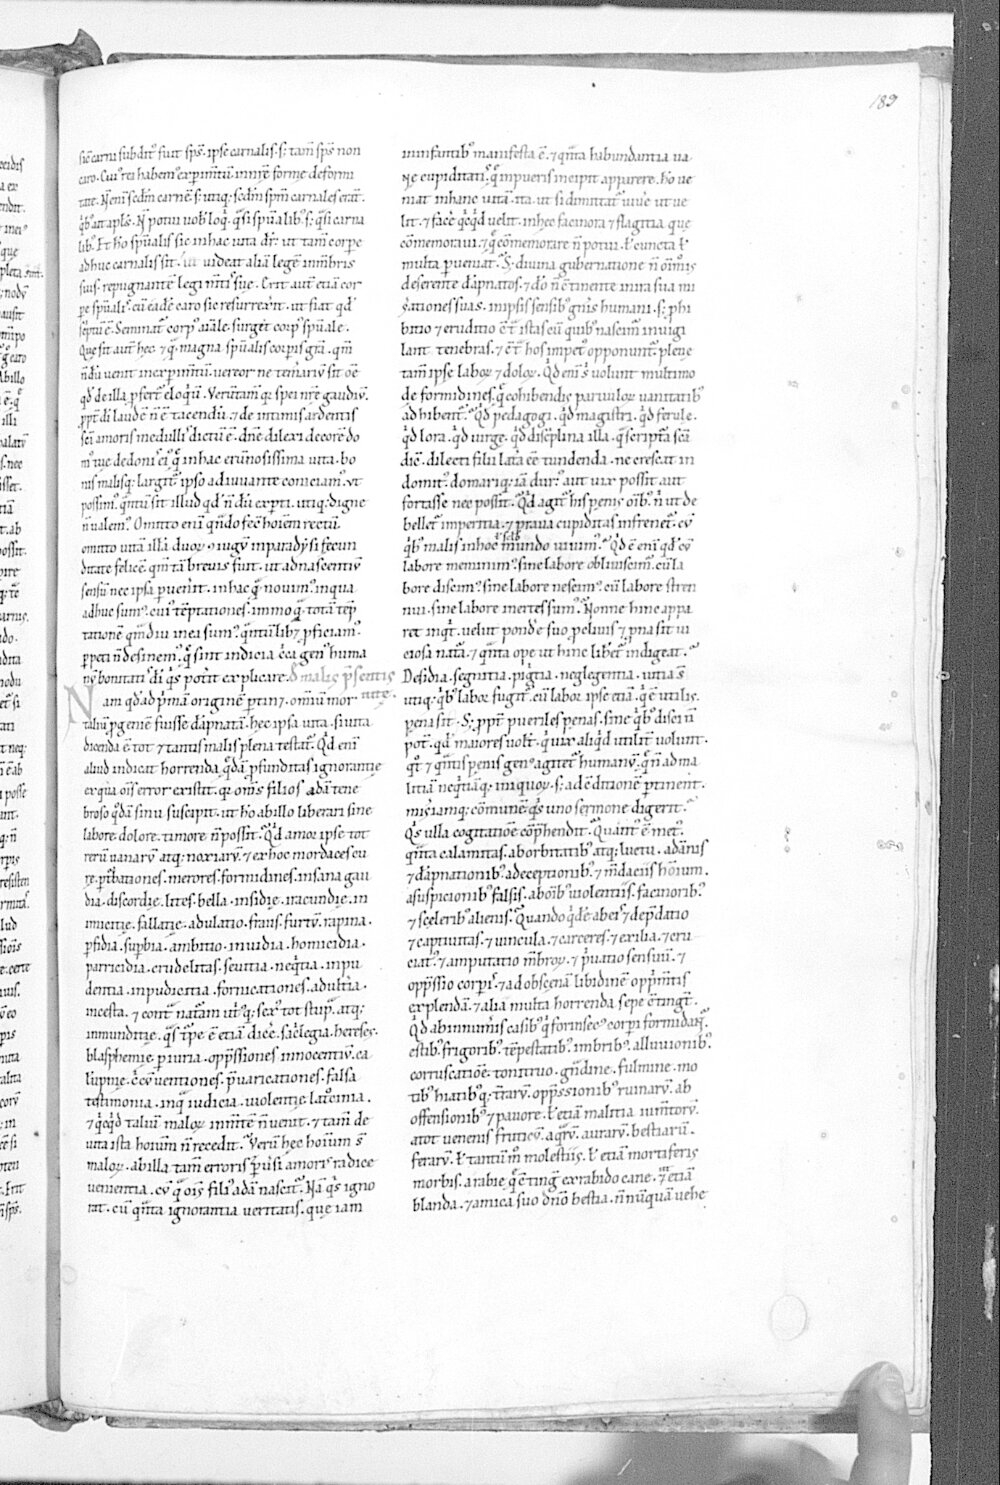 189
sic̄ carni subdit᷒ fuit sp̄s. ipse carnalis. s; tam̄ sp̄s non
caro. Cui᷒ rei habem᷒ experim̄tū in nr̄ę forme deformi
tate. N̄ eni᷑ scd̄m carnē. s; utiq; scd̄m spm̄ carnales erāt.
quib᷒ ait apl̄s. N̄ potui uob᷒ loq̄. q̄si sp̄ualib᷒. s; q̄si carna
lib᷒. Et ho sp̄ualis sic in hac uita dr̄. ut tam̄ corpe
adhuc carnalis sit. ut uideat aliā legē in mēbris
suis. repugnantē legi mt̄is suę. Erit aut̄ etiā cor
pe sp̄ualis. cū eadē caro sic resurrexer̄it. ut fiat qd̄
sc̄ptū ē. Seminat᷑ corp᷒ aīale. surget corp᷒ sp̄uale.
Que sit aut̄ hec. ⁊ q̄ magna sp̄ualis corpis gr̄a. qm̄
n̄dū uenit in experim̄tū. uereor ne temerariū sit om̄e
qd̄ de illa p̄fert᷑ eloquiū. Verūtam̄ quia spei nr̄ę gaudiū.
ppt̄ di laudē n̄ ē tacendū. ⁊ de intimis ardentis
sc̄i amoris medullis dictū ē. dn̄e dilexi decorē do
m᷒ tuę. de donis ei᷒ q̄ in hac erumnosissima uita bo
nis malisq; largit᷑. ipso adiuuante coniciam᷒. ut
possim᷒. q̄ntū sit illud qd̄ n̄dū expti. utiq; digne
n̄ ualem᷒. Omitto enī q̄ndo fec̄ hoīem rectū.
omitto uitā illā duor̄. iugū in paradysi fecun
ditate felicē. qm̄ tā breuis fuit. ut ad nascentiū
sensū nec ipsa puenit. in hac q̄ nouim᷒. in qua
adhuc sum᷒. cui᷒ tēptationes. immo q̄ totā tēp
tationē q̄mdiu in ea sum᷒. q̄ntūlibet pficiam᷒.
ppeti n̄ desinem᷒. q̄ sint indicia c̄ca gen᷒ huma
nū bonitatis di. q̄s poterit explicare. De malis presentis uite.
Nam qd̄ ad p̄mā originē ptinet. omniū mor
taliū p̄geniē fuisse dāpnatā. hec ipsa uita. si uita
dicenda ē. tot ⁊ tantis malis plena testat᷑. Qd̄ enī
aliud indicat horrenda q̄dā pfunditas ignorantię
ex qua om̄is error existit. q̄ omēs filios adā tene
broso q̄dā sinu suscipit. ut ho ab illo liberari sine
labore. dolore. timore n̄ possit. Qd̄ amor ipse tot
rerū uanarū atq; noxiarū. ⁊ ex hoc mordaces cu
rę. pturbationes. merores. formidines. insana gau
dia. discordię. lites. bella. insidię. iracundię. in
imicitię. fallatię. adulatio. fraus. furtū. rapina.
pfidia. supbia. ambitio. inuidia. homicidia.
parricidia. crudelitas. seuitia. neq̄tia. inpu
dentia. inpudicitia. fornicationes. adultia.
incesta. ⁊ cont̄ naturam utri᷒q; sex᷒ tot stupra. atq;
inmunditię. q̄s turpe ē etiā dice. sac̄legia. hereses.
blasphemię. piuria. opp̄ssiones innocentiū. ca
lūpnię. c̄cūuentiones. p̄uaricationes. falsa
testimonia. iniqua iudicia. uiolentię. latrocinia.
⁊ q̄cq̄d taliū malor̄ in mentē n̄ uenit. ⁊ tam̄ de
uita ista hoīum n̄ recedit. Verū hec hoīum s̄
malor̄. ab illa tam̄ erroris ⁊ puersi amoris radice
uenientia. cū q̄ om̄is fili᷒ adā nascit᷑. Nā q̄s igno
rat. cū q̄nta ignorantia ueritatis. que iam
in infantib᷒ manifesta ē. ⁊ q̄nta habundantia ua
nę cupiditatis. q̄ in pueris incipit apparere. ho ue
niat in hanc uitā. ita. ut si dimittat᷑ uiue ut ue
lit. ⁊ face q̄cq̄d uelit. in hec facinora ⁊ flagitia. que
cōmemoraui. ⁊ q̄ cōmemorare n̄ potui. ł cuncta ł
multa pueniat. S; diuina gubernatione n̄ om̄imodis
deserente dāpnatos. ⁊ do n̄ c̄tinente in ira sua mi
serationes suas. in ipsis sensib᷒ gn̄is humani. s; phi
bitio ⁊ eruditio c̄t̄ istas cū quib᷒ nascim᷒ inuigi
lant tenebras. ⁊ c̄t̄ hos impet᷒ opponunt᷑. plene
tam̄ ipse labor̄ ⁊ dolor̄. Qd̄ enī s̄ uolunt multimo
de formidines. q̄ cohibendis paruulor̄ uanitatib᷒
adhibent᷑. Qd̄ pedagogi. qd̄ magistri. qd̄ ferule.
qd̄ lora. qd̄ uirge. qd̄ discēplina illa. q̄ scriptā sc̄a
dic̄. dilecti filii lata ēē tundenda. ne crescat in
domit᷒. domariq; iā dur᷒. aut uix possit. aut
fortasse nec possit. Qd̄ agit᷑ his penis om̄ib᷒. n̄ ut de
bellet᷑ imperitia. ⁊ praua cupiditas infrenet᷑. cū
q̄b᷒ malis in hoc mundo uiuim᷒. Qd̄ ē enī qd̄ cū
labore meminim᷒. sine labore obliuiscim᷒. cū la
bore discim᷒. sine labore nescim᷒. cū labore stren
nui. sine labore inertes sum᷒. Nonne hinc appa
ret in qd̄. uelut pondere suo procliuis ⁊ prona sit ui
ciosa natā. ⁊ q̄nta ope ut hinc liberet᷑ indigeat.
Desidia. segnitia. pigritia. neglegentia. uitia s̄
utiq; q̄b᷒ labor fugit᷑. cū labor ipse etiā q̄ ē utilis.
pena sit. S; ppt̄ pueriles penas. sine q̄b᷒ disci n̄
pot̄. qd̄ maiores uolt̄. q̄ uix aliqd̄ utilit̄ uolunt.
q̄t ⁊ q̄ntis penis gen᷒ agitet᷑ humanū. q̄ n̄ ad ma
litiā neq̄tiāq; iniquor̄. s; ad c̄ditionē ptinent.
miseriamq; cōmunē. q̄s uno sermone digerit.
Q̄s ulla cogitatiōe cōp̄hendit. Quant᷒ ē met᷒.
q̄nta calamitas. ab orbitatib᷒ atq; luctu. a dānis
⁊ dāpnationib᷒. a deceptionib᷒ ⁊ mendaciis hoīum.
a suspicionib᷒ falsis. ab om̄ib᷒ uiolentiis. facinorib᷒
⁊ sceleribus alienis. Quando q̄dē ab eis ⁊ depdatio
⁊ captiuitas. ⁊ uincula. ⁊ carceres. ⁊ exilia. ⁊ cru
ciat᷒. ⁊ amputatio mēbror̄. ⁊ p̄uatio sensuū. ⁊
opp̄ssio corpis. ⁊ ad obscenā libidinē opp̄mtis
explendā. ⁊ alia multa horrenda sepe c̄tingt̄.
Qd̄ ab innumis casib᷒ q̄ forinsec᷒ corpi formidant᷑.
estib᷒. frigorib᷒. tēpestatib᷒. imbrib᷒. alluuionib᷒.
corruscatiōe. tonitruo. gn̄dine. fulmine. mo
tib᷒ hiatib᷒q; terrarū. opp̄ssionib᷒ ruinarū. ab
offensionib᷒ ⁊ pauore. ł etiā malitia iumtorū.
a tot uenenis fruticū. aq̄rū. aurarū. bestiarū.
ferarū. ł tantūm molestiis. ł etiā mortiferis
morbis. a rabie q̄ c̄tingit ex rabido cane. ut etiā
blanda. ⁊ amica suo dn̄o bestia. n̄nūquā uehe